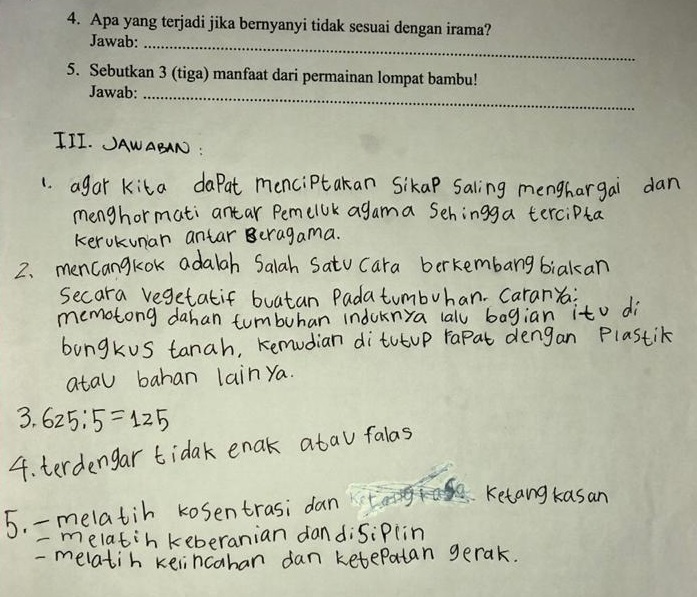 4. Apa yang terjadi jika bernyanyi tidak sesuai dengan irama?
Jawab:
5. Sebutkan 3 (tiga) manfaat dari permainan lompat bambu!
Jawab:
III. JAWABAN :
1. agar kita dapat menciptakan sikap saling menghargai dan
menghormati antar pemeluk agama sehingga tercipta
kerukunan antar Beragama.
2. mencangkok adalah salah satu cara berkembang biakan
secara vegetatif buatan pada tumbuhan. caranya:
memotong dahan tumbuhan induknya lalu bagian itu di
bungkus tanah, kemudian di tutup rapat dengan plastik
atau bahan lainya.
3. 625:5=125
4. terdengar tidak enak atau falas
5. - melatih kosentrasi dan ketangkasan
- melatih keberanian dan disiplin
- melatih kelincahan dan ketepatan gerak.